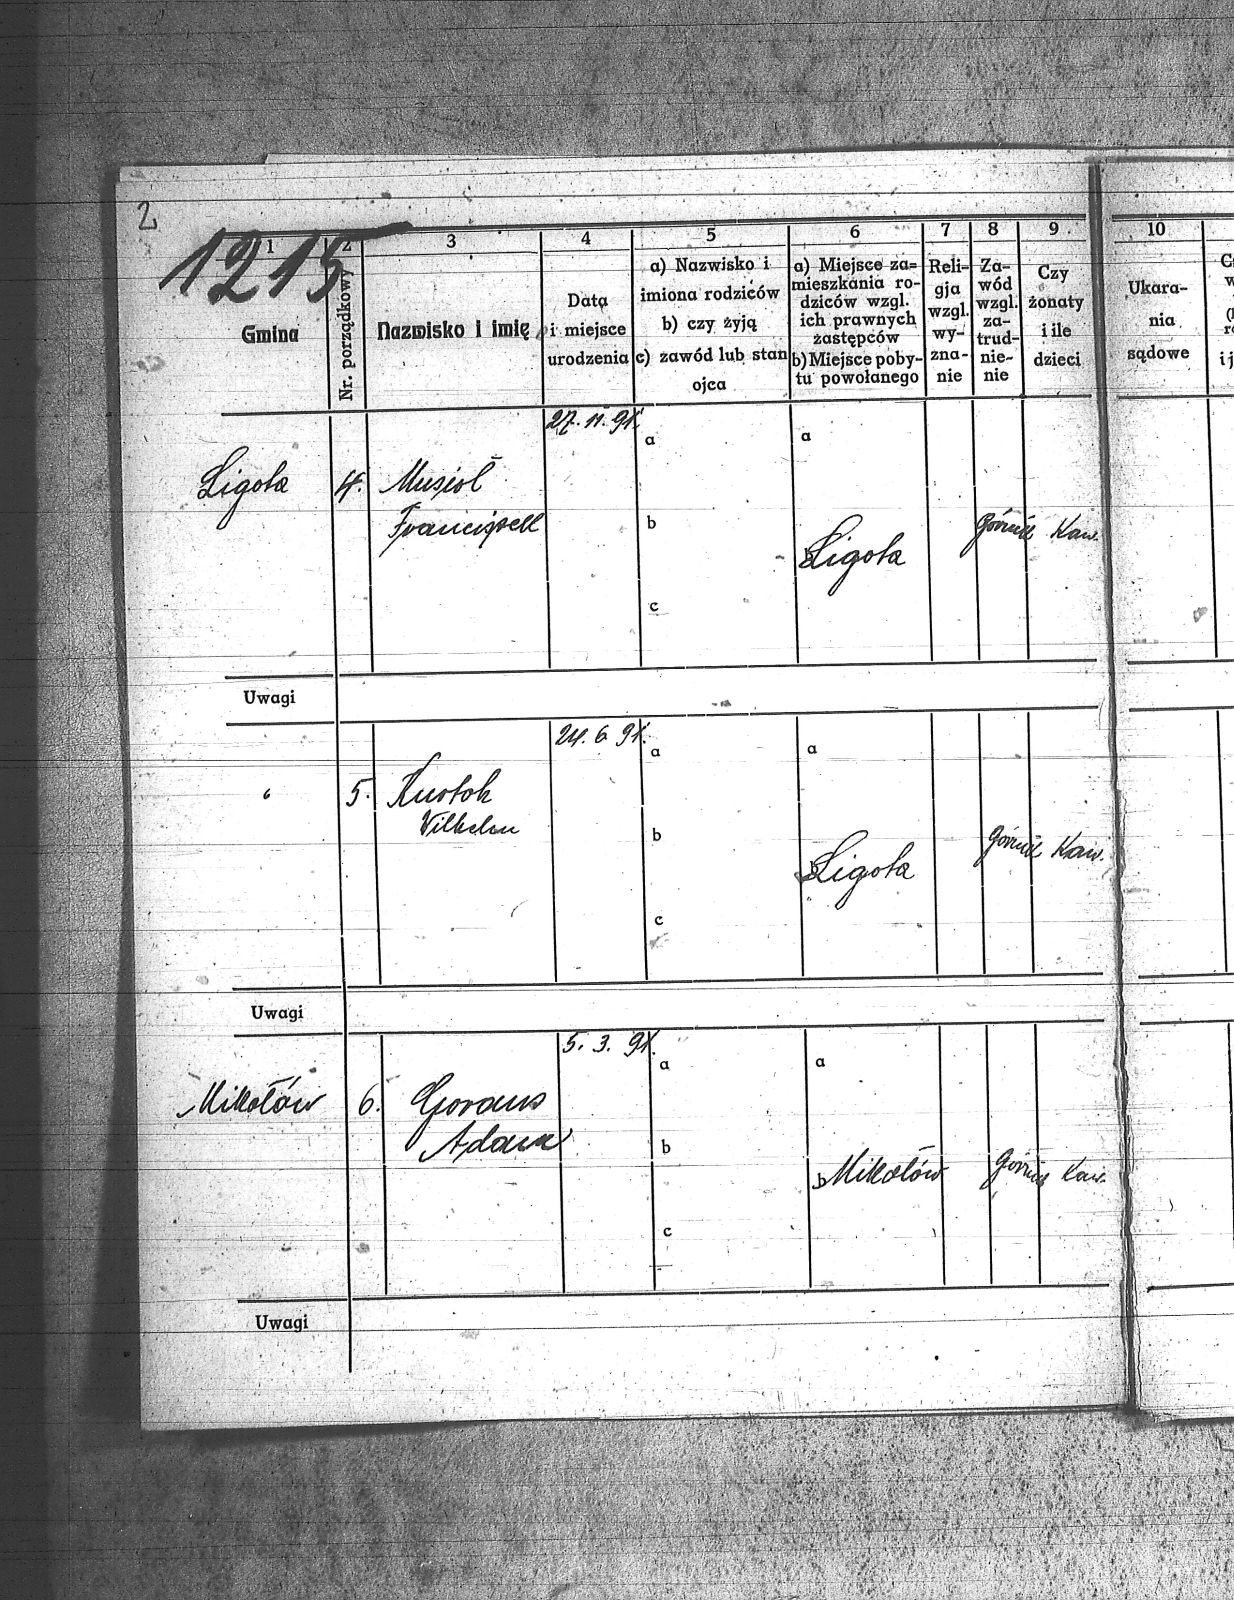 2
1215
1
2
3
4
5
6
7
8
9
10
Gmina
Nr. porządkowy
Nazwisko i imię
Data
i miejsce
urodzenia
a) Nazwisko i
imiona rodziców
b) czy żyją
c) zawód lub stan
ojca
a) Miejsce za=
mieszkania ro-
dziców wzgl.
ich prawnych
zastępców
b) Miejsce poby-
tu powołanego
Reli-
gja
wzgl.
wy-
zna-
nie
Za-
wód
wzgl.
za-
trud-
nie-
nie
Czy
żonaty
i ile
dzieci
Ukara-
nia
sądowe
27. 11. 91.
a
a
Ligota 4. Musioł
Franciszek
b
Ligota
Górnik Kaw.
c
Uwagi
24. 6. 91.
a
a
" 5.
Wilhelm
b
Ligota
Górnik Kaw.
c
Uwagi
5. 3. 91.
a
a
Mikołów 6.
Adam
b
b Mikołów
Górnik Kaw.
c
Uwagi